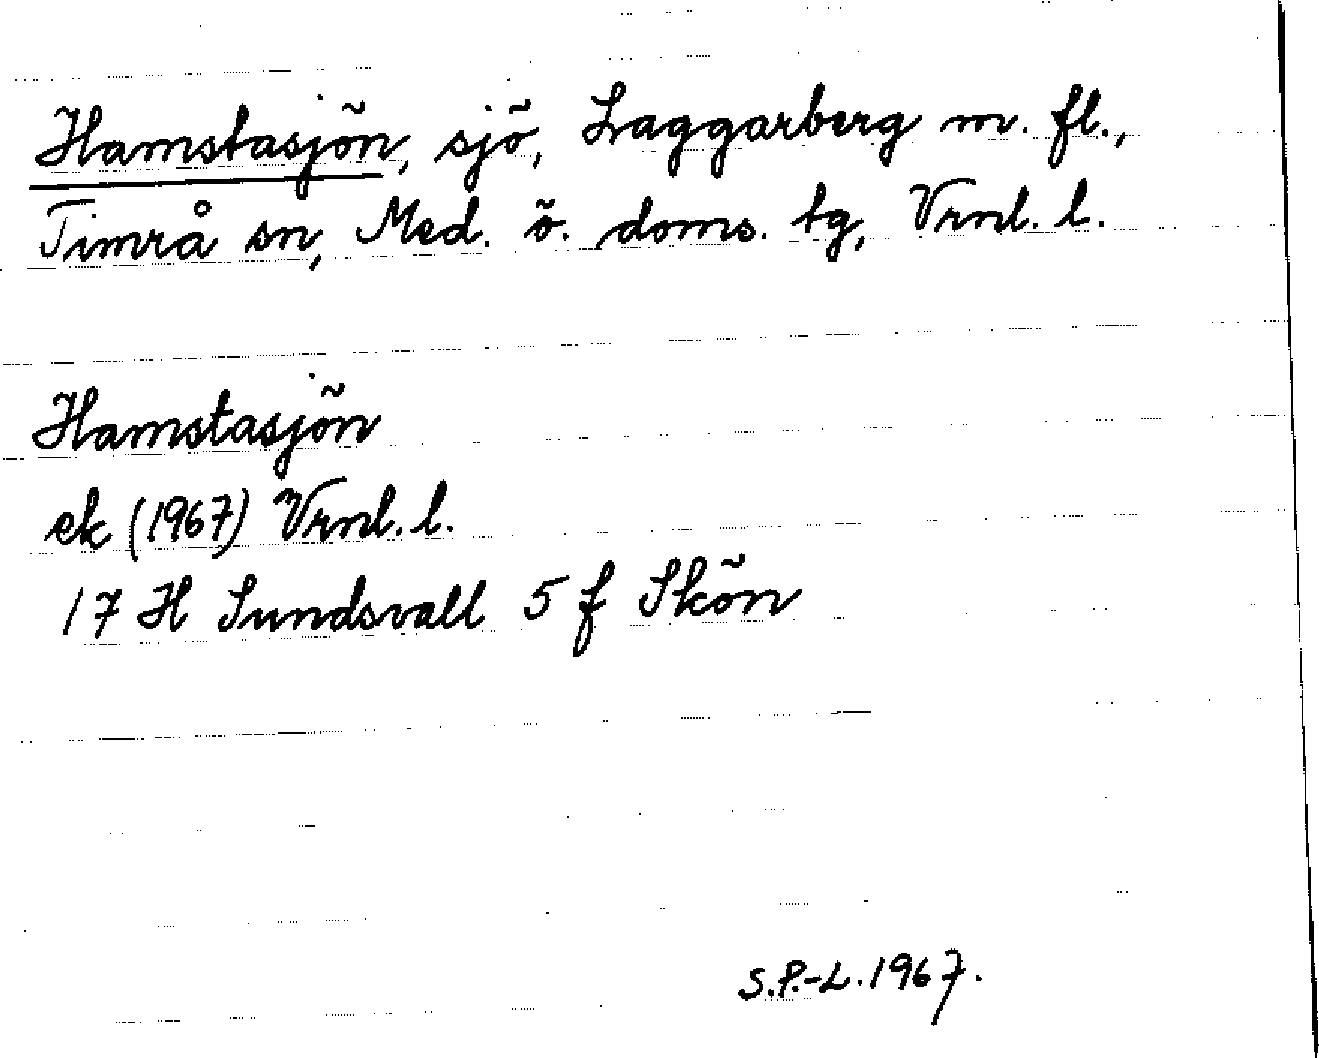 Hamstasjön, sjö, Laggarberg m. fl.,
Timrå sn, Med. ö. doms. tg, Vrnl. l.
Hamstasjön
ek (1967) Vrnl. l.
17 H Sundsvall 5 f Skön
S.P.-L. 1967.